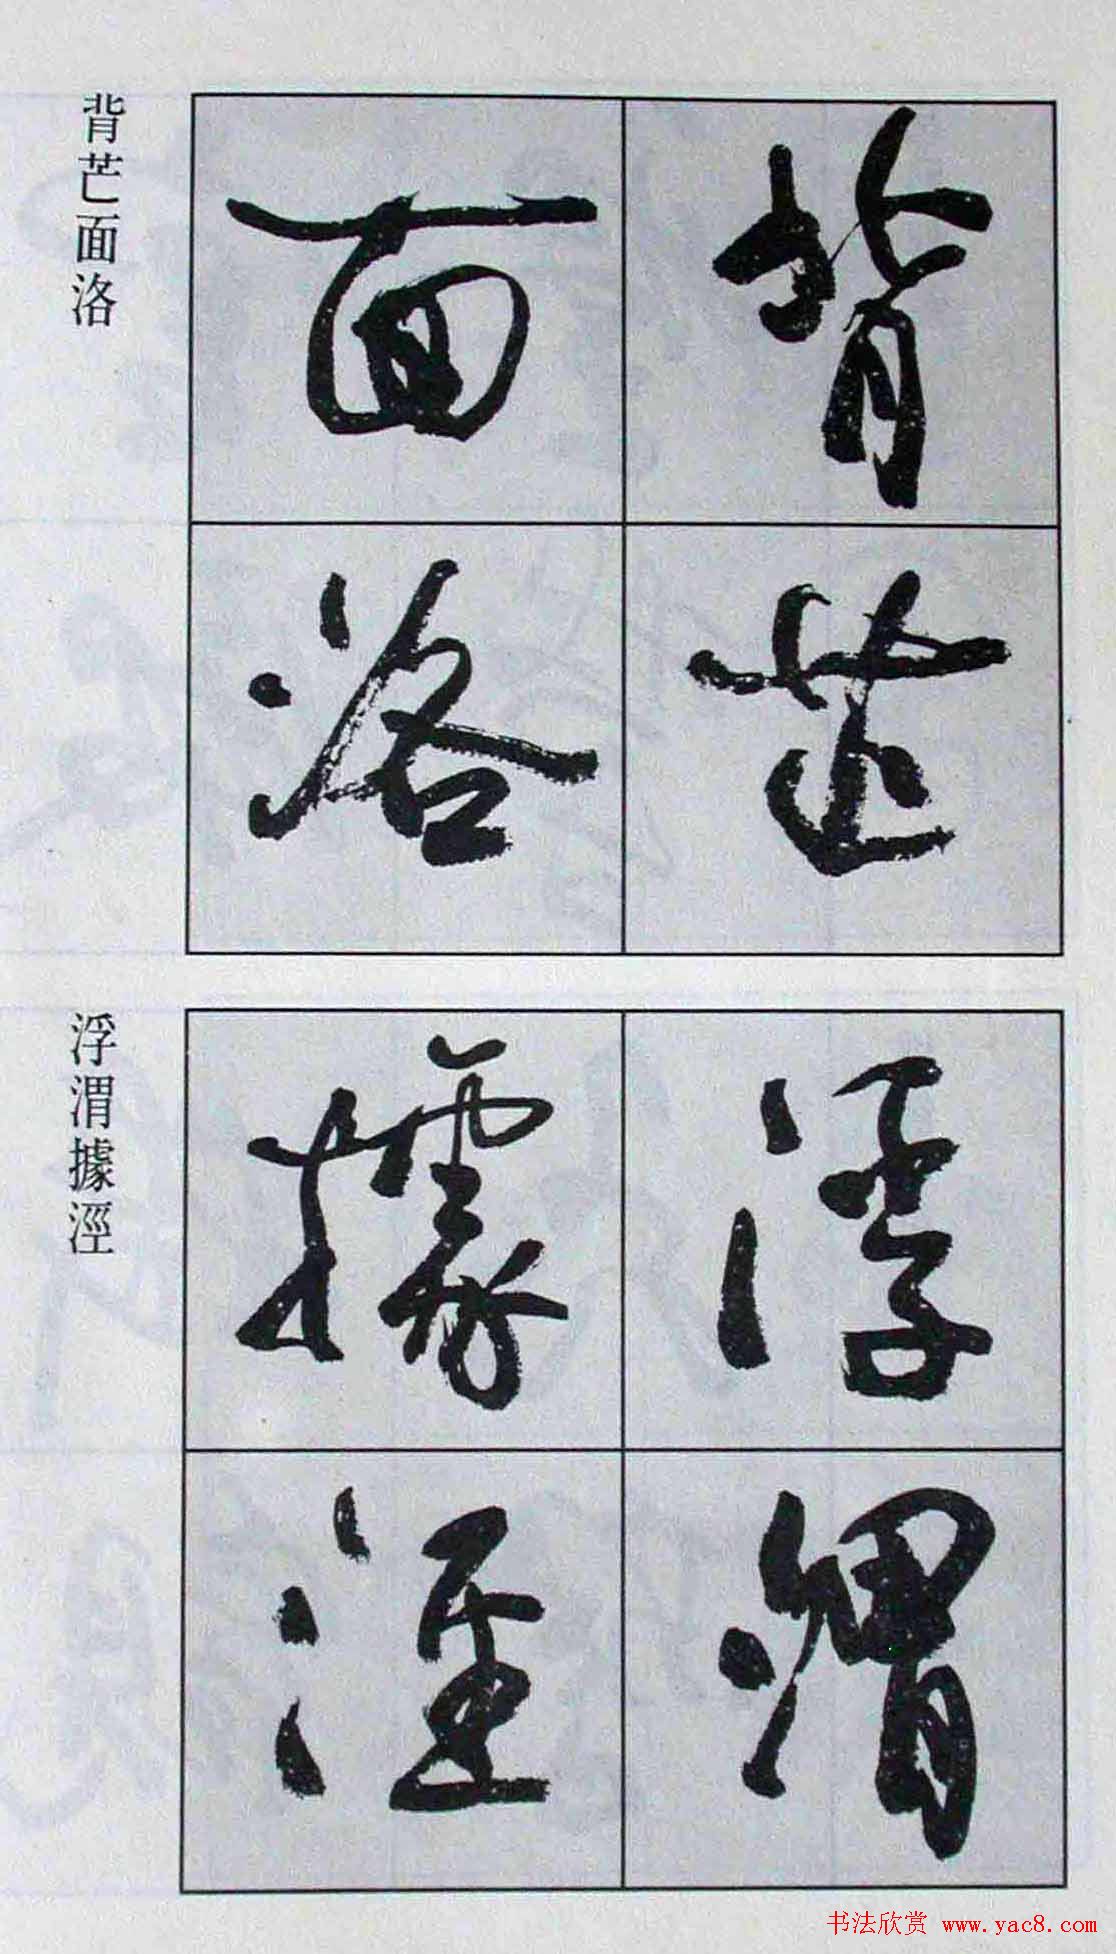 背芒
面洛
背芒面洛
浮渭
據涇
浮渭據涇
书法欣赏 www.yac8.com